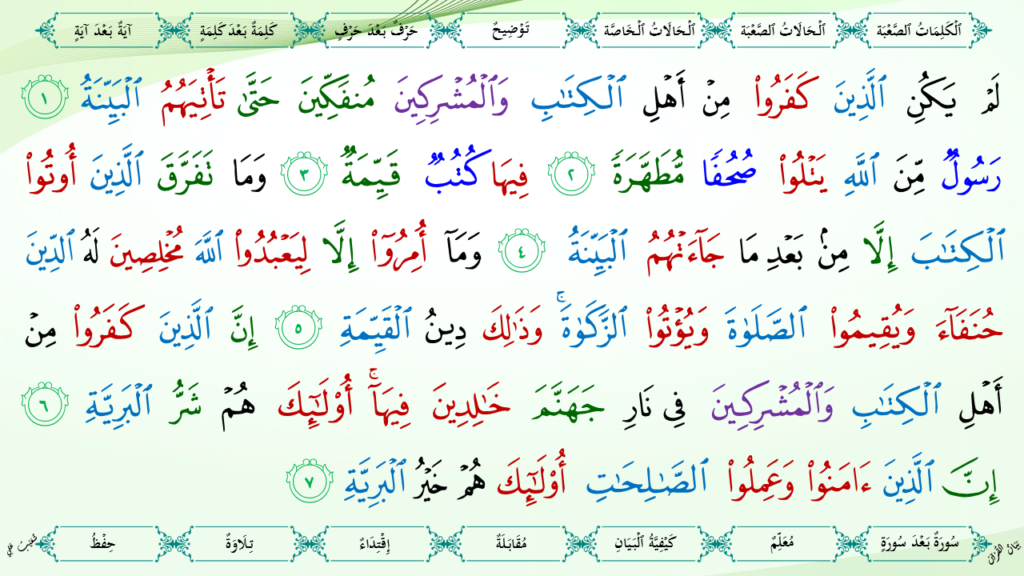 ٱلْكَلِمَاتُ ٱلصَّعْبَة ٱلْحَالَاتُ ٱلصَّعْبَة ٱلْحَالَاتُ ٱلْخَاصَّة تَوْضِيحٌ حَرْفٌ بَعْدَ حَرْفٍ كَلِمَةٌ بَعْدَ كَلِمَةٍ آيَةٌ بَعْدَ آيَةٍ
لَمْ يَكُنِ ٱلَّذِينَ كَفَرُوا۟ مِنْ أَهْلِ ٱلْكِتَـٰبِ وَٱلْمُشْرِكِينَ مُنفَكِّينَ حَتَّىٰ تَأْتِيَهُمُ ٱلْبَيِّنَةُ ١
رَسُولٌ مِّنَ ٱللَّهِ يَتْلُوا۟ صُحُفًا مُّطَهَّرَةً ٢ فِيهَا كُتُبٌ قَيِّمَةٌ ٣ وَمَا تَفَرَّقَ ٱلَّذِينَ أُوتُوا۟
ٱلْكِتَـٰبَ إِلَّا مِنۢ بَعْدِ مَا جَآءَتْهُمُ ٱلْبَيِّنَةُ ٤ وَمَآ أُمِرُوٓا۟ إِلَّا لِيَعْبُدُوا۟ ٱللَّهَ مُخْلِصِينَ لَهُ ٱلدِّينَ
حُنَفَآءَ وَيُقِيمُوا۟ ٱلصَّلَوٰةَ وَيُؤْتُوا۟ ٱلزَّكَوٰةَ ۚ وَذَٰلِكَ دِينُ ٱلْقَيِّمَةِ ٥ إِنَّ ٱلَّذِينَ كَفَرُوا۟ مِنْ
أَهْلِ ٱلْكِتَـٰبِ وَٱلْمُشْرِكِينَ فِى نَارِ جَهَنَّمَ خَـٰلِدِينَ فِيهَآ ۚ أُو۟لَـٰٓئِكَ هُمْ شَرُّ ٱلْبَرِيَّةِ ٦
إِنَّ ٱلَّذِينَ ءَامَنُوا۟ وَعَمِلُوا۟ ٱلصَّـٰلِحَـٰتِ أُو۟لَـٰٓئِكَ هُمْ خَيْرُ ٱلْبَرِيَّةِ ٧
سُورَةٌ بَعْدَ سُورَةٍ مُعَلِّمٌ كَيْفِيَّةُ ٱلْبَيَانِ مُقَابَلَةٌ إِقْتِدَاءٌ تِلَاوَةٌ حِفْظٌ
بَيَانُ الْقُرْآنِ